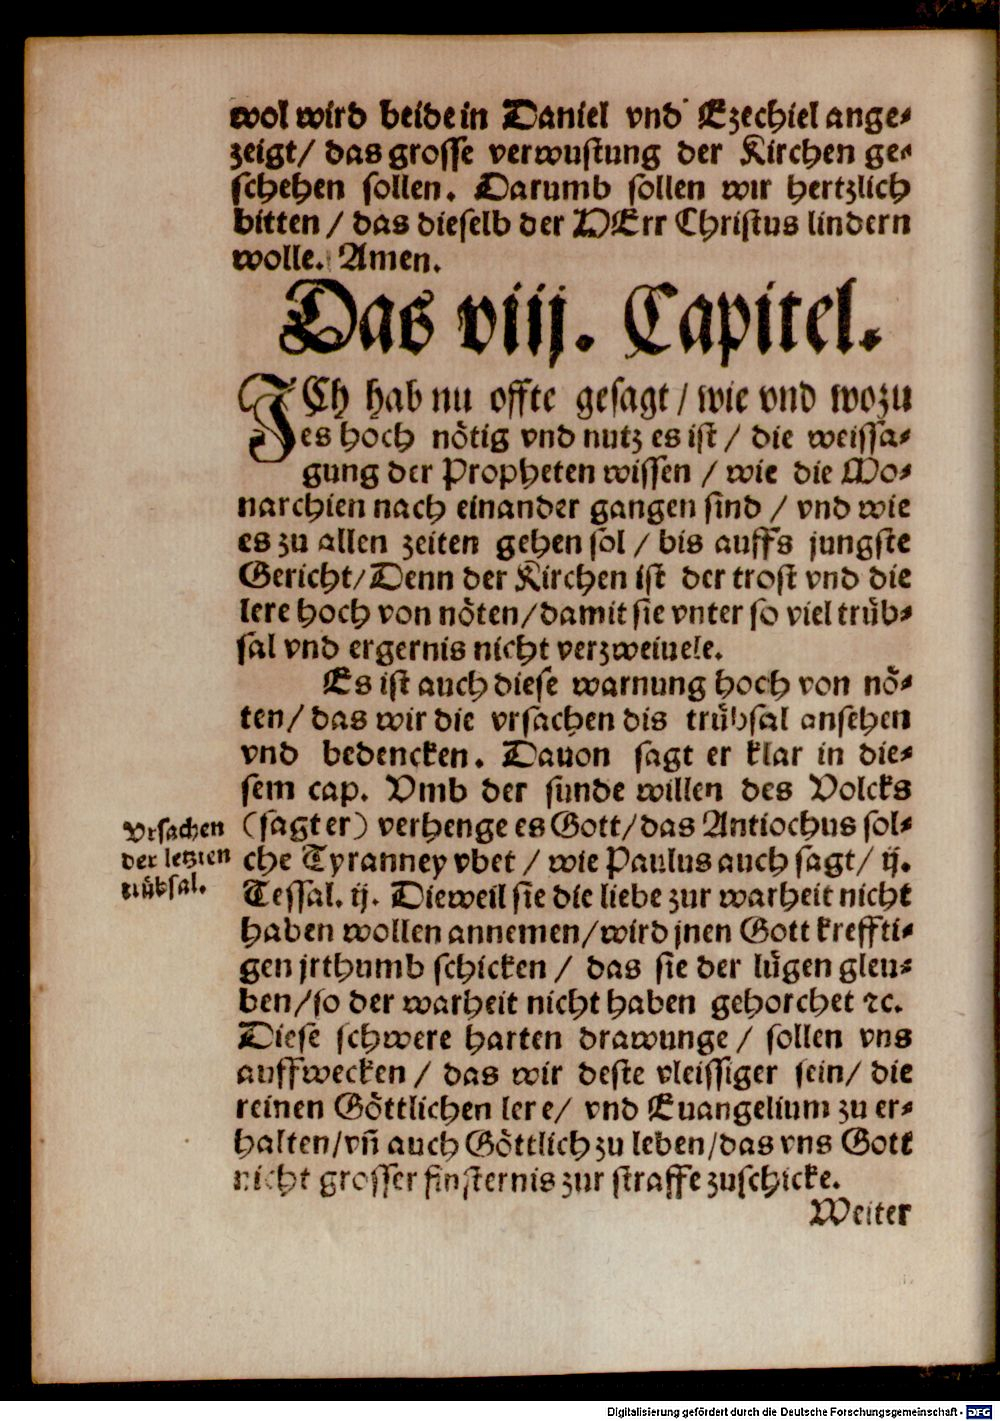 wol wird beide in Daniel vnd Ezechiel ange⸗
zeigt/ das grosse verwustung der Kirchen ge⸗
schehen sollen. Darumb sollen wir hertzlich
bitten / das dieselb der HErr Christus lindern
wolle. Amen.
Das viij. Capitel.
ICh hab nu offte gesagt / wie vnd wozu
es hoch nötig vnd nutz es ist / die weissa⸗
gung der Propheten wissen / wie die Mo⸗
narchien nach einander gangen sind / vnd wie
es zu allen zeiten gehen sol / bis auffs jungste
Gericht/ Denn der Kirchen ist der trost vnd die
lere hoch von nöten/ damit sie vnter so viel trüb⸗
sal vnd ergernis nicht verzweiuele.
Es ist auch diese warnung hoch von nö⸗
ten/ das wir die vrsachen dis trübsal ansehen
vnd bedencken. Dauon sagt er klar in die⸗
sem cap. Vmb der sunde willen des Volcks
(sagt er) verhenge es Gott/ das Antiochus sol⸗
che Tyranney vbet / wie Paulus auch sagt/ ij.
Tessal. ij. Dieweil sie die liebe zur warheit nicht
haben wollen annemen/ wird jnen Gott kreffti⸗
gen jrthumb schicken / das sie der lügen gleu⸗
ben/ so der warheit nicht haben gehorchet ꝛc.
Diese schwere harten drawunge / sollen vns
auffwecken / das wir deste vleissiger sein/ die
reinen Göttlichen lere/ vnd Euangelium zu er⸗
halten/ vn̄ auch Göttlich zu leben/ das vns Gott
nicht grosser finsternis zur straffe zuschicke.
Weiter
Vrsachen
der letzten
trübsal.
Digitalisierung gefördert durch die Deutsche Forschungsgemeinschaft - DFG